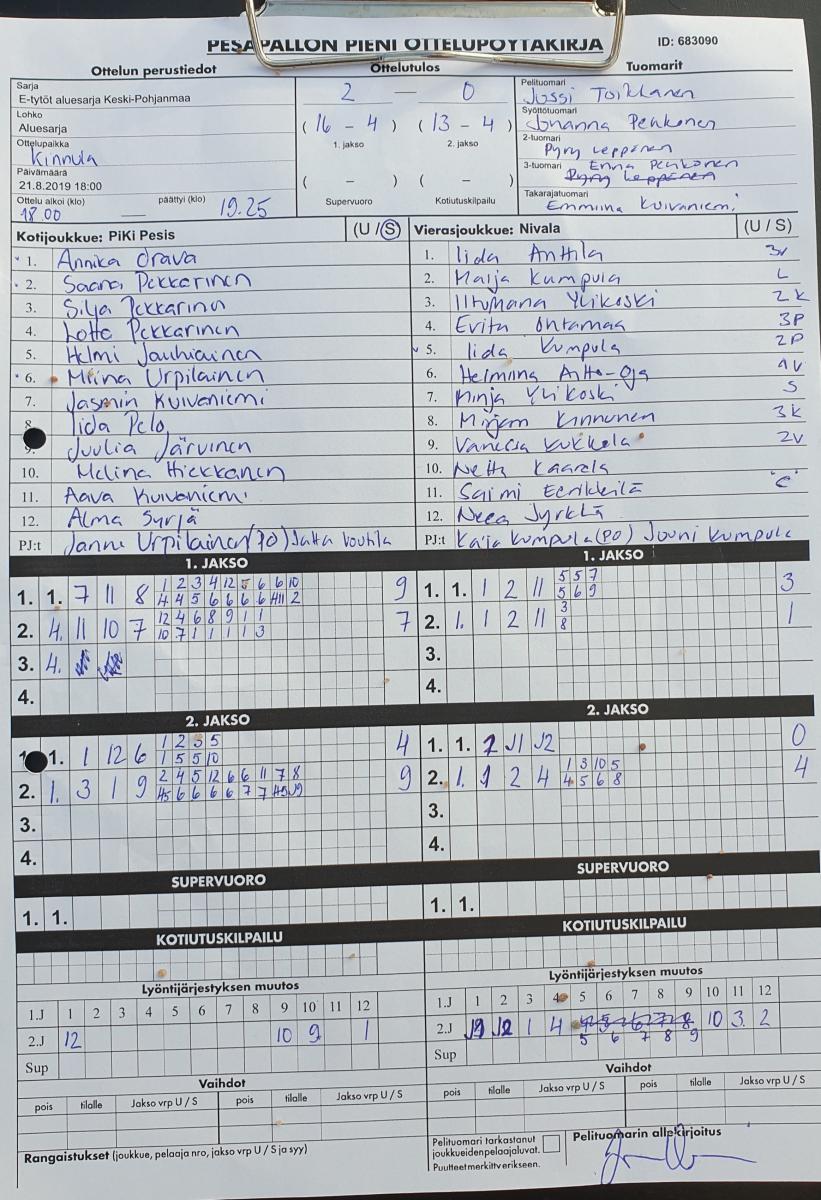 PESÄPALLON PIENI OTTELUPÖYTÄKIRJA
ID: 683090
Ottelun perustiedot
Ottelutulos
Tuomarit
Sarja
E-tytöt aluesarja Keski-Pohjanmaa
Lohko
Aluesarja
Ottelupaikka
Kinnula
Päivämäärä
21.8.2019 18:00
Ottelu alkoi (klo) päättyi (klo)
18.00 — 19.25
2 — 0
( 16 - 4 ) ( 13 - 4 )
1. jakso 2. jakso
( - ) ( - )
Supervuoro Kotiutuskilpailu
Pelituomari
Jussi Toikkanen
Syöttötuomari
Johanna Penkonen
2-tuomari
Pyry Leppänen
3-tuomari Enna Penkonen
Pyry Leppänen
Takarajatuomari
Emmiina Kuivaniemi
Kotijoukkue: PiKi Pesis (U / S)
1. Annika Orava
2. Saana Pekkarinen
3. Silja Pekkarinen
4. Lotta Pekkarinen
5. Helmi Jauhiainen
6. Miina Urpilainen
7. Jasmin Kuivaniemi
8. Iida Pelo
9. Juulia Järvinen
10. Melina Hiekkanen
11. Aava Kuivaniemi
12. Alma Syrjä
PJ:t Janne Urpilainen (PO) Jukka Voutila
Vierasjoukkue: Nivala (U / S)
1. Iida Anttila 3v
2. Maija Kumpula L
3. Ylikoski 2K
4. Evita Ontamaa 3P
5. Iida Kumpula 2P
6. Helmiina Aitto-Oja 1V
7. Minja Ylikoski S
8. Mirjam Kinnunen 3K
9. Vanessa Kukkola 2V
10. Netta Kaarela
11. Saimi Eerikkilä "C"
12. Neea Jyrkkä
PJ:t Kaija Kumpula (PO) Jouni Kumpula
1. JAKSO
1. 1. 7 11 8 9
1 2 3 4 12 5 6 6 10
4 4 5 6 6 6 6 4 11 2
2. 4. 11 10 7 7
12 4 6 8 9 1 1
10 7 1 1 1 1 3
3. 4.
4.
1. JAKSO
1. 1. 1 2 11 3
5 5 7
5 6 9
2. 1. 1 2 11 1
3
8
3.
4.
2. JAKSO
1. 1 12 6 4
1 2 3 5
1 5 5 10
2. 1. 3 1 9 9
2 4 5 12 6 6 11 7 8
45 6 6 6 6 7 7 45 J9
3.
4.
2. JAKSO
1. 1. 2 J1 J2 0
2. 1. 1 2 4 4
1 3 10 5
4 5 6 8
3.
4.
SUPERVUORO
1. 1.
SUPERVUORO
1. 1.
KOTIUTUSKILPAILU
KOTIUTUSKILPAILU
Lyöntijärjestyksen muutos
1.J 1 2 3 4 5 6 7 8 9 10 11 12
2.J 12 10 9 1
Sup
Lyöntijärjestyksen muutos
1.J 1 2 3 4 5 6 7 8 9 10 11 12
2.J J9 J2 1 4 4 5 6 7 8 10 3 2
5 6 7 8 9
Sup
Vaihdot
pois tilalle Jakso vrp U / S pois tilalle Jakso vrp U / S
Vaihdot
pois tilalle Jakso vrp U / S pois tilalle Jakso vrp U / S
Rangaistukset (joukkue, pelaaja nro, jakso vrp U / S ja syy)
Pelituomari tarkastanut
joukkueiden pelaajaluvat.
Puutteet merkittv erikseen.
Pelituomarin allekirjoitus